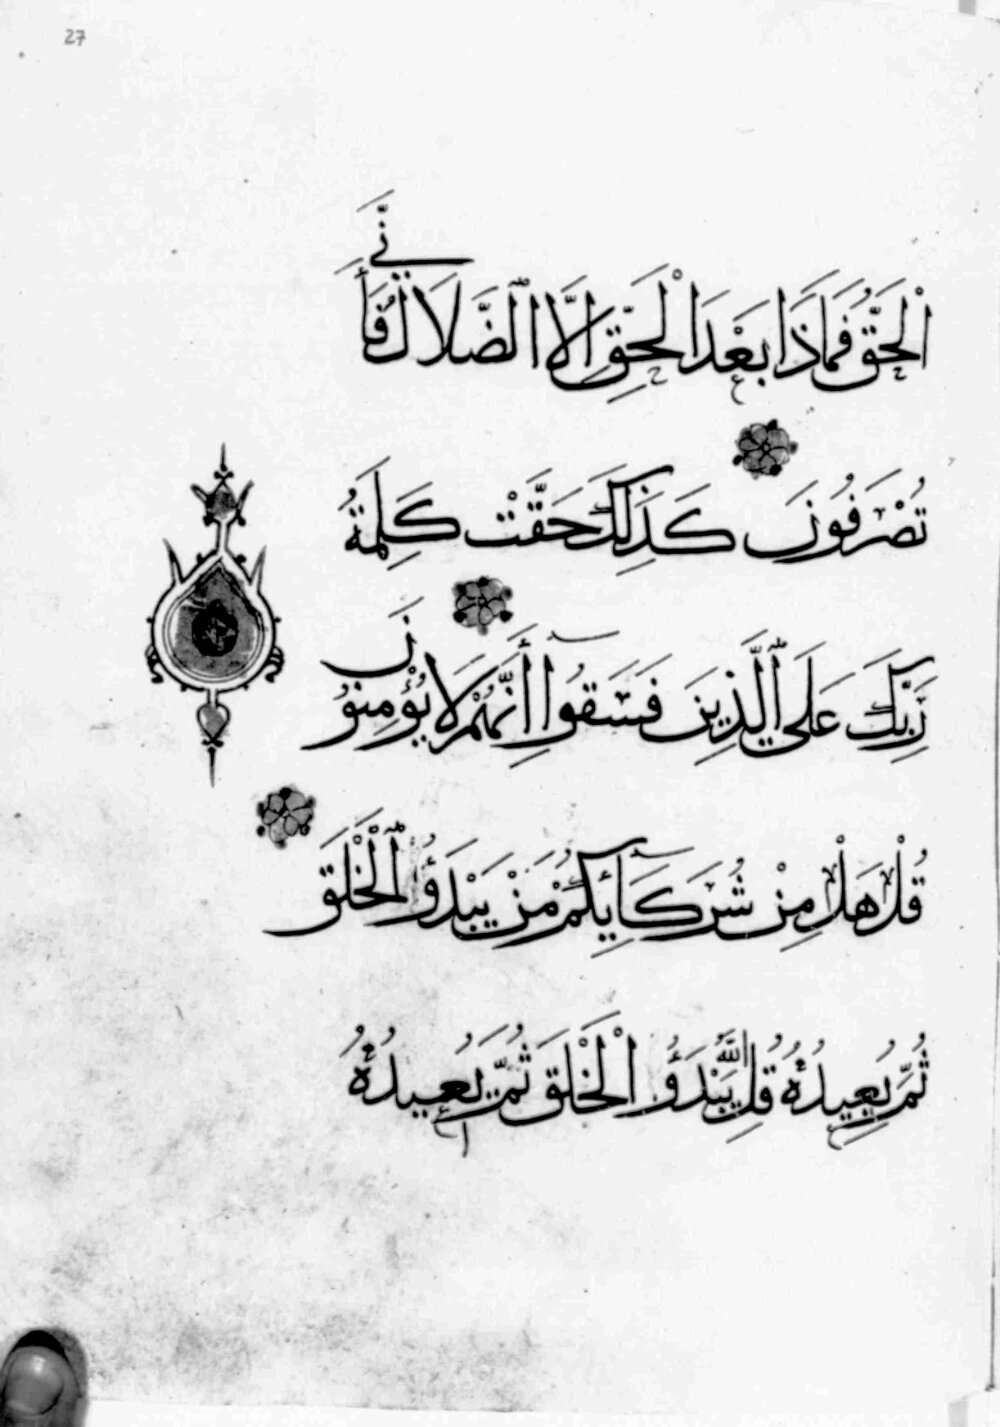 27
الْحَقُّ فَمَاذَا بَعْدَ الْحَقِّ إِلَّا الضَّلَالُ فَأَنَّى
تُصْرَفُونَ كَذَلِكَ حَقَّتْ كَلِمَةُ
رَبِّكَ عَلَى الَّذِينَ فَسَقُوا أَنَّهُمْ لَا يُؤْمِنُونَ
قُلْ هَلْ مِنْ شُرَكَائِكُمْ مَنْ يَبْدَؤُا الْخَلْقَ
ثُمَّ يُعِيدُهُ قُلِ اللَّهُ يَبْدَؤُا الْخَلْقَ ثُمَّ يُعِيدُهُ